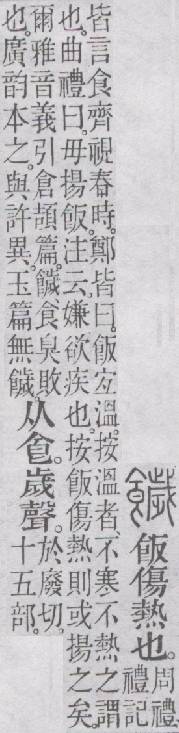 饖 飯傷熱也。周禮
禮記
皆言食齊視春時。鄭皆曰。飯宐溫。按溫者、不寒不熱之謂
也。曲禮曰。毋揚飯。注云。嫌欲疾也。按飯傷熱則或揚之矣。
爾雅音義引倉頡篇。饖、食臭敗
也。廣韵本之。與許異。玉篇無饖。
从𠊊。歲聲。於廢切。
十五部。